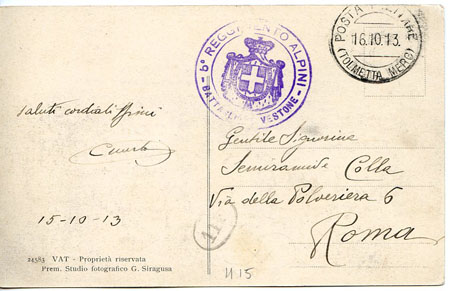 6º REGGIMENTO ALPINI
BATTAGLIONE VESTONE
POSTA MILITARE
16.10.13.
(TOLMETTA MERG)
saluti cordialissimi
15-10-13
Gentile Signorina
Semiramide Colla
Via della Polveriera 6
Roma
11
24583 VAT - Proprietà riservata
Prem. Studio fotografico G. Siragusa
1115